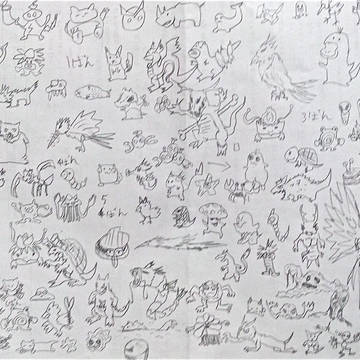 1ばん
3ばん
4ばん
5
ばん